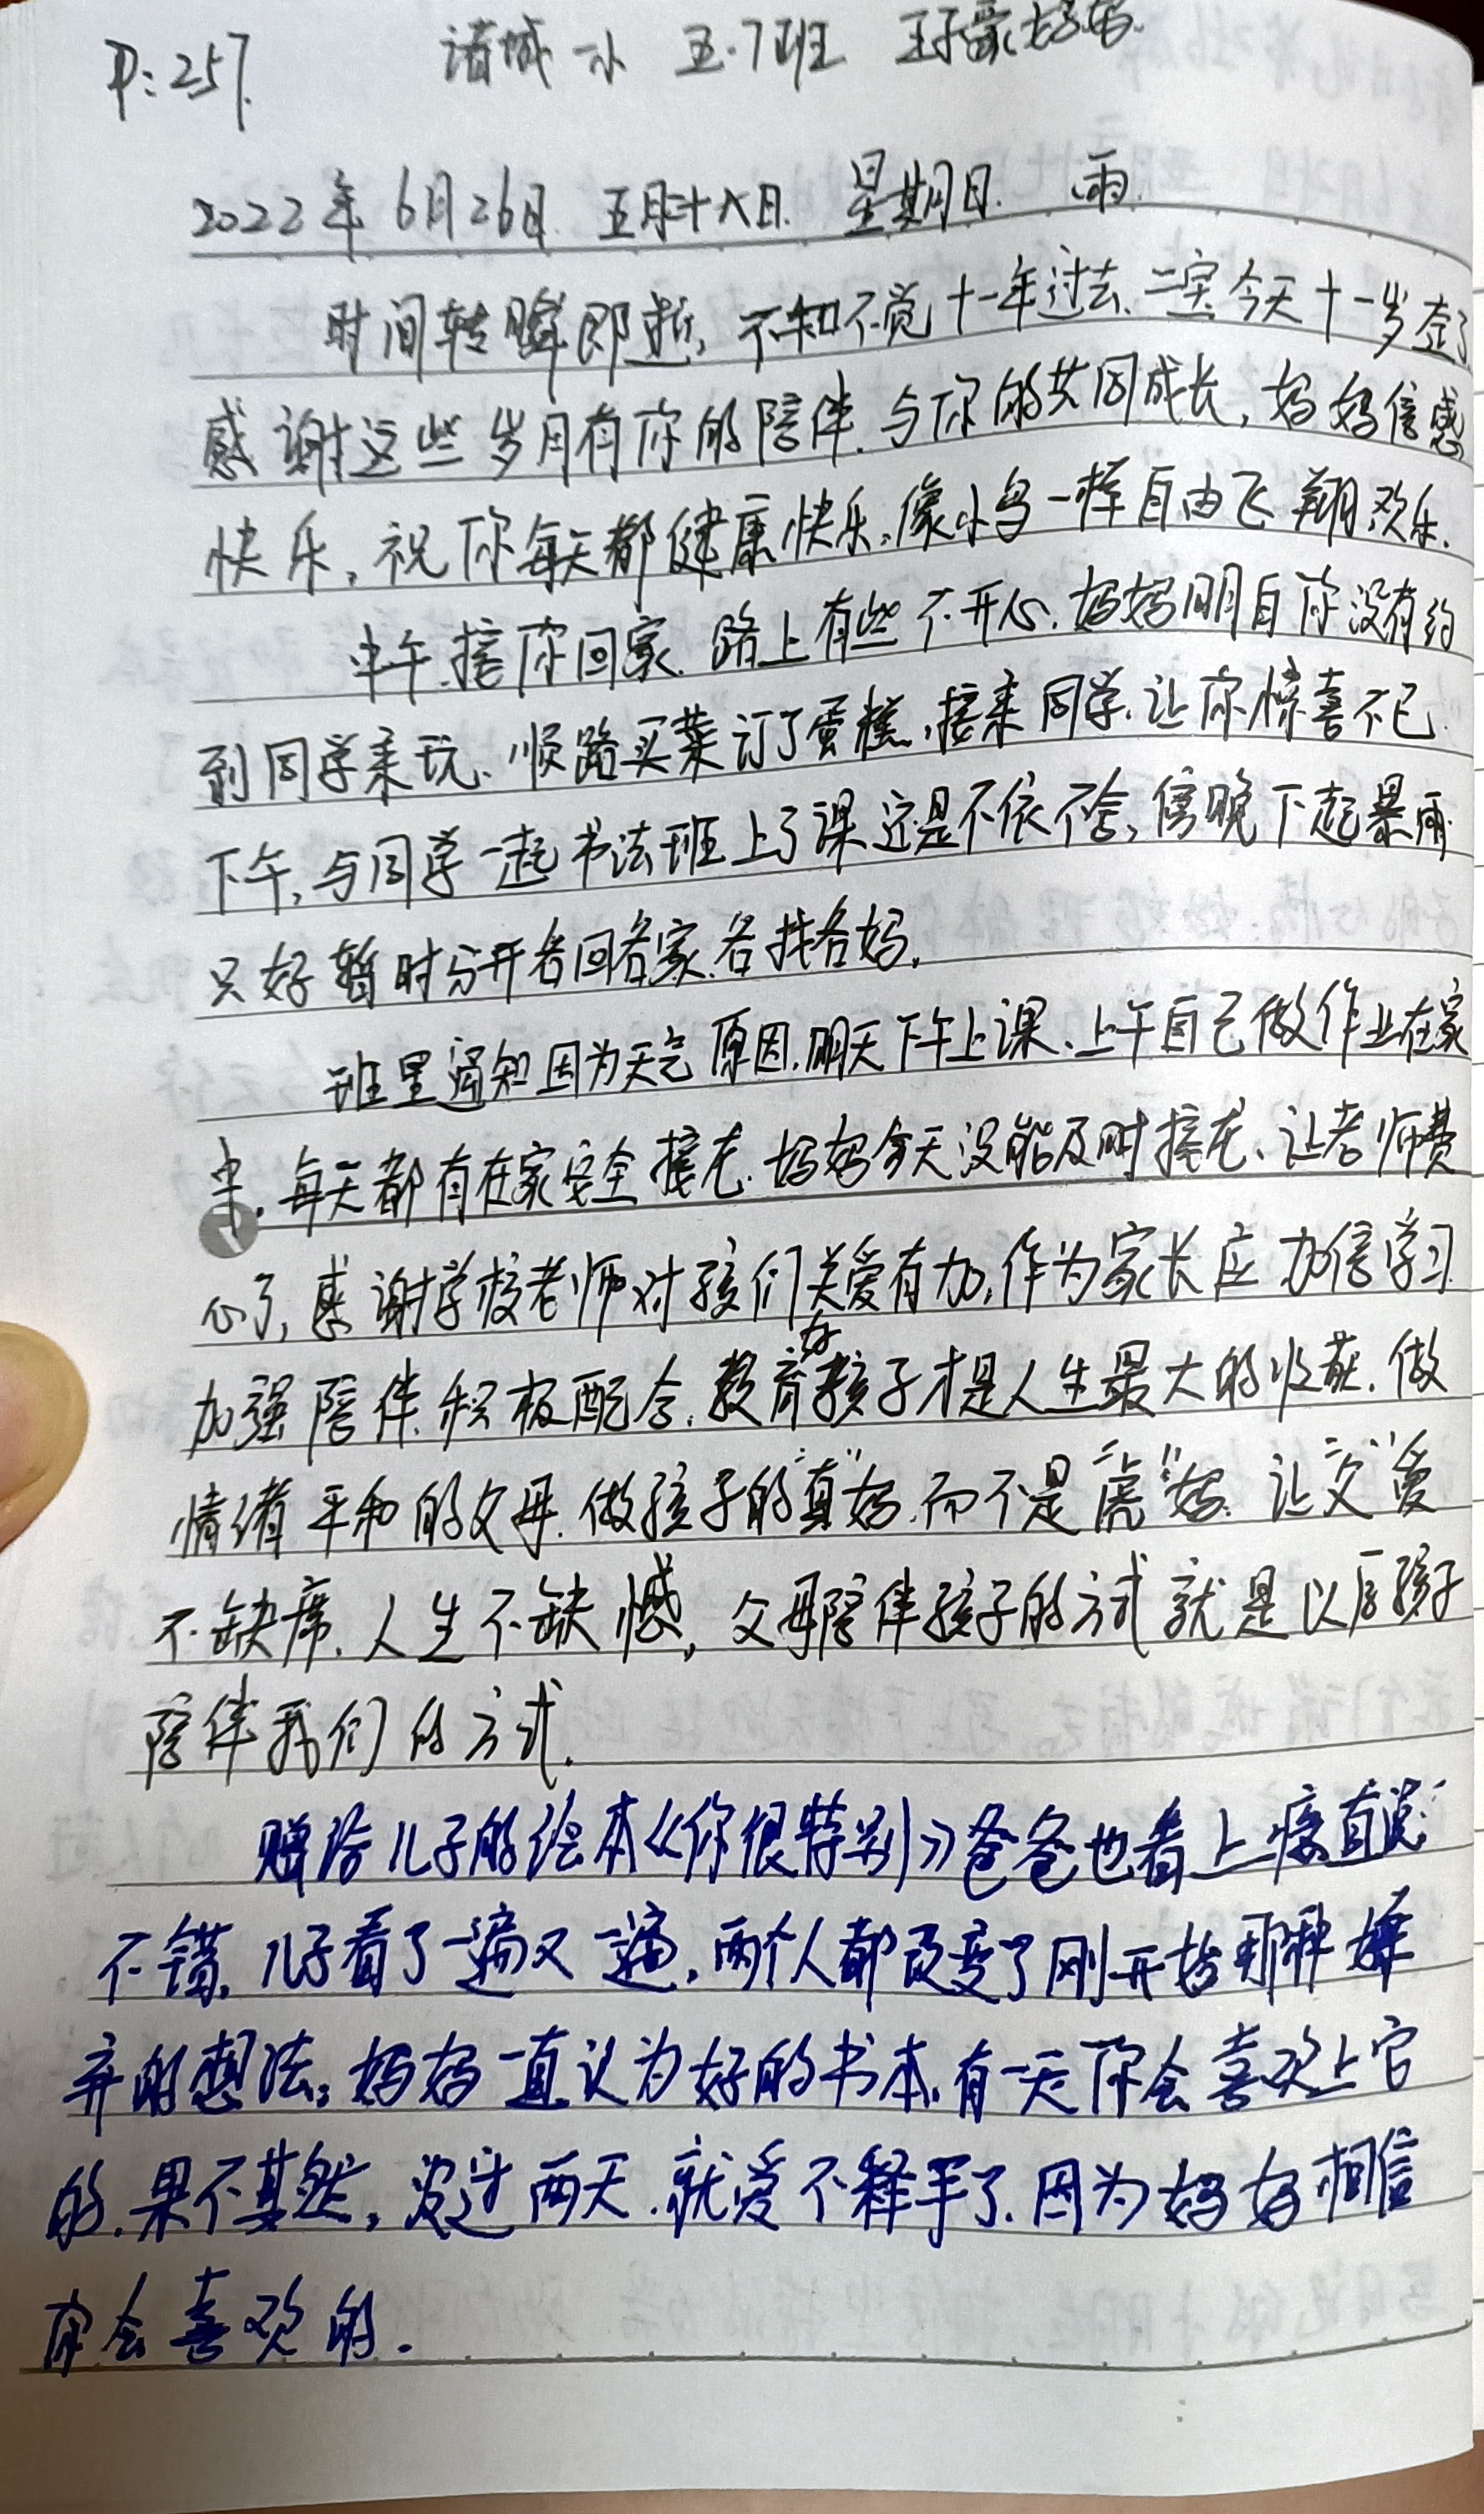 P:257. 诸城一小 五·7班 王子豪妈妈.
2022年6月26日. 五月二十八日. 星期日. 雨.
时间转瞬即逝,不知不觉十一年过去、二宝今天十一岁整了
感谢这些岁月有你的陪伴.与你的共同成长,妈妈倍感
快乐,祝你每天都健康快乐,像小鸟一样自由飞翔欢乐.
中午.接你回家.路上有些不开心.妈妈明白你没有约
到同学来玩、顺路买菜订了蛋糕,接来同学、让你惊喜不已.
下午,与同学一起书法班上了课还是不依不舍,傍晚下起暴雨.
只好暂时分开各回各家.各找各妈.
班里通知因为天气原因.明天下午上课、上午自己做作业在家
中.每天都有在家安全接龙.妈妈今天没能及时接龙、让老师费
心了,感谢学校老师对孩们关爱有加,作为家长应加倍学习
加强陪伴.积极配合.教育好孩子才是人生最大的收获.做
情绪平和的父母.做孩子的“真”妈.而不是“虎”妈.让“父”爱
不缺席.人生不缺憾,父母陪伴孩子的方式就是以后孩子
陪伴我们的方式.
赠给儿子的绘本《你很特别》爸爸也看上瘾直说:
不错.儿子看了一遍又一遍,两个人都改变了刚开始那种嫌
弃的想法,妈妈一直认为好的书本.有一天你会喜欢上它
的.果不其然,没过两天.就爱不释手了.因为妈妈相信
你会喜欢的.